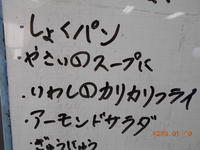 ・しょくパン
・やさいのスープに
・いわしのカリカリフライ
・アーモンドサラダ
・ぎゅうにゅう